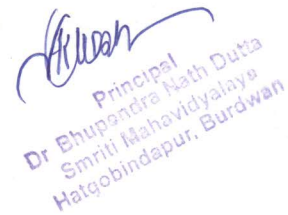 Principal
Dr Bhupendra Nath Dutta
Smriti Mahavidyalaya
Hatgobindapur, Burdwan